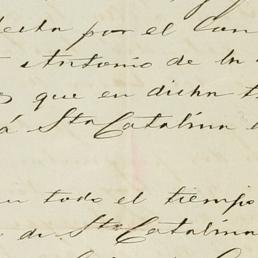 por el Con
Antonio de la
que en dicha
á Sta Catalina
todo el tiempo
de Sta Catalina